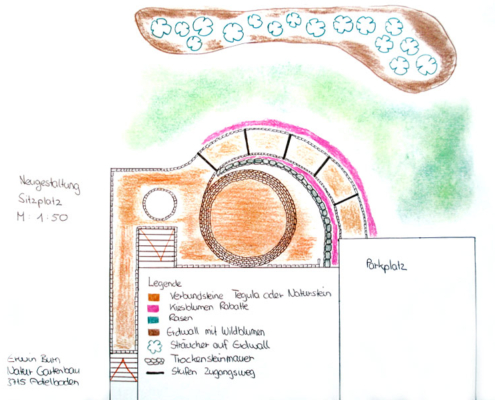 Neugestaltung
Sitzplatz
M: 1:50
Parkplatz
Legende
Verbundsteine Tegula oder Naturstein
Kiesblumen Rabatte
Rasen
Erdwall mit Wildblumen
Sträucher auf Erdwall
Trockensteinmauer
Stufen Zugangsweg
Erwin
Natur Gartenbau
3715 Adelboden